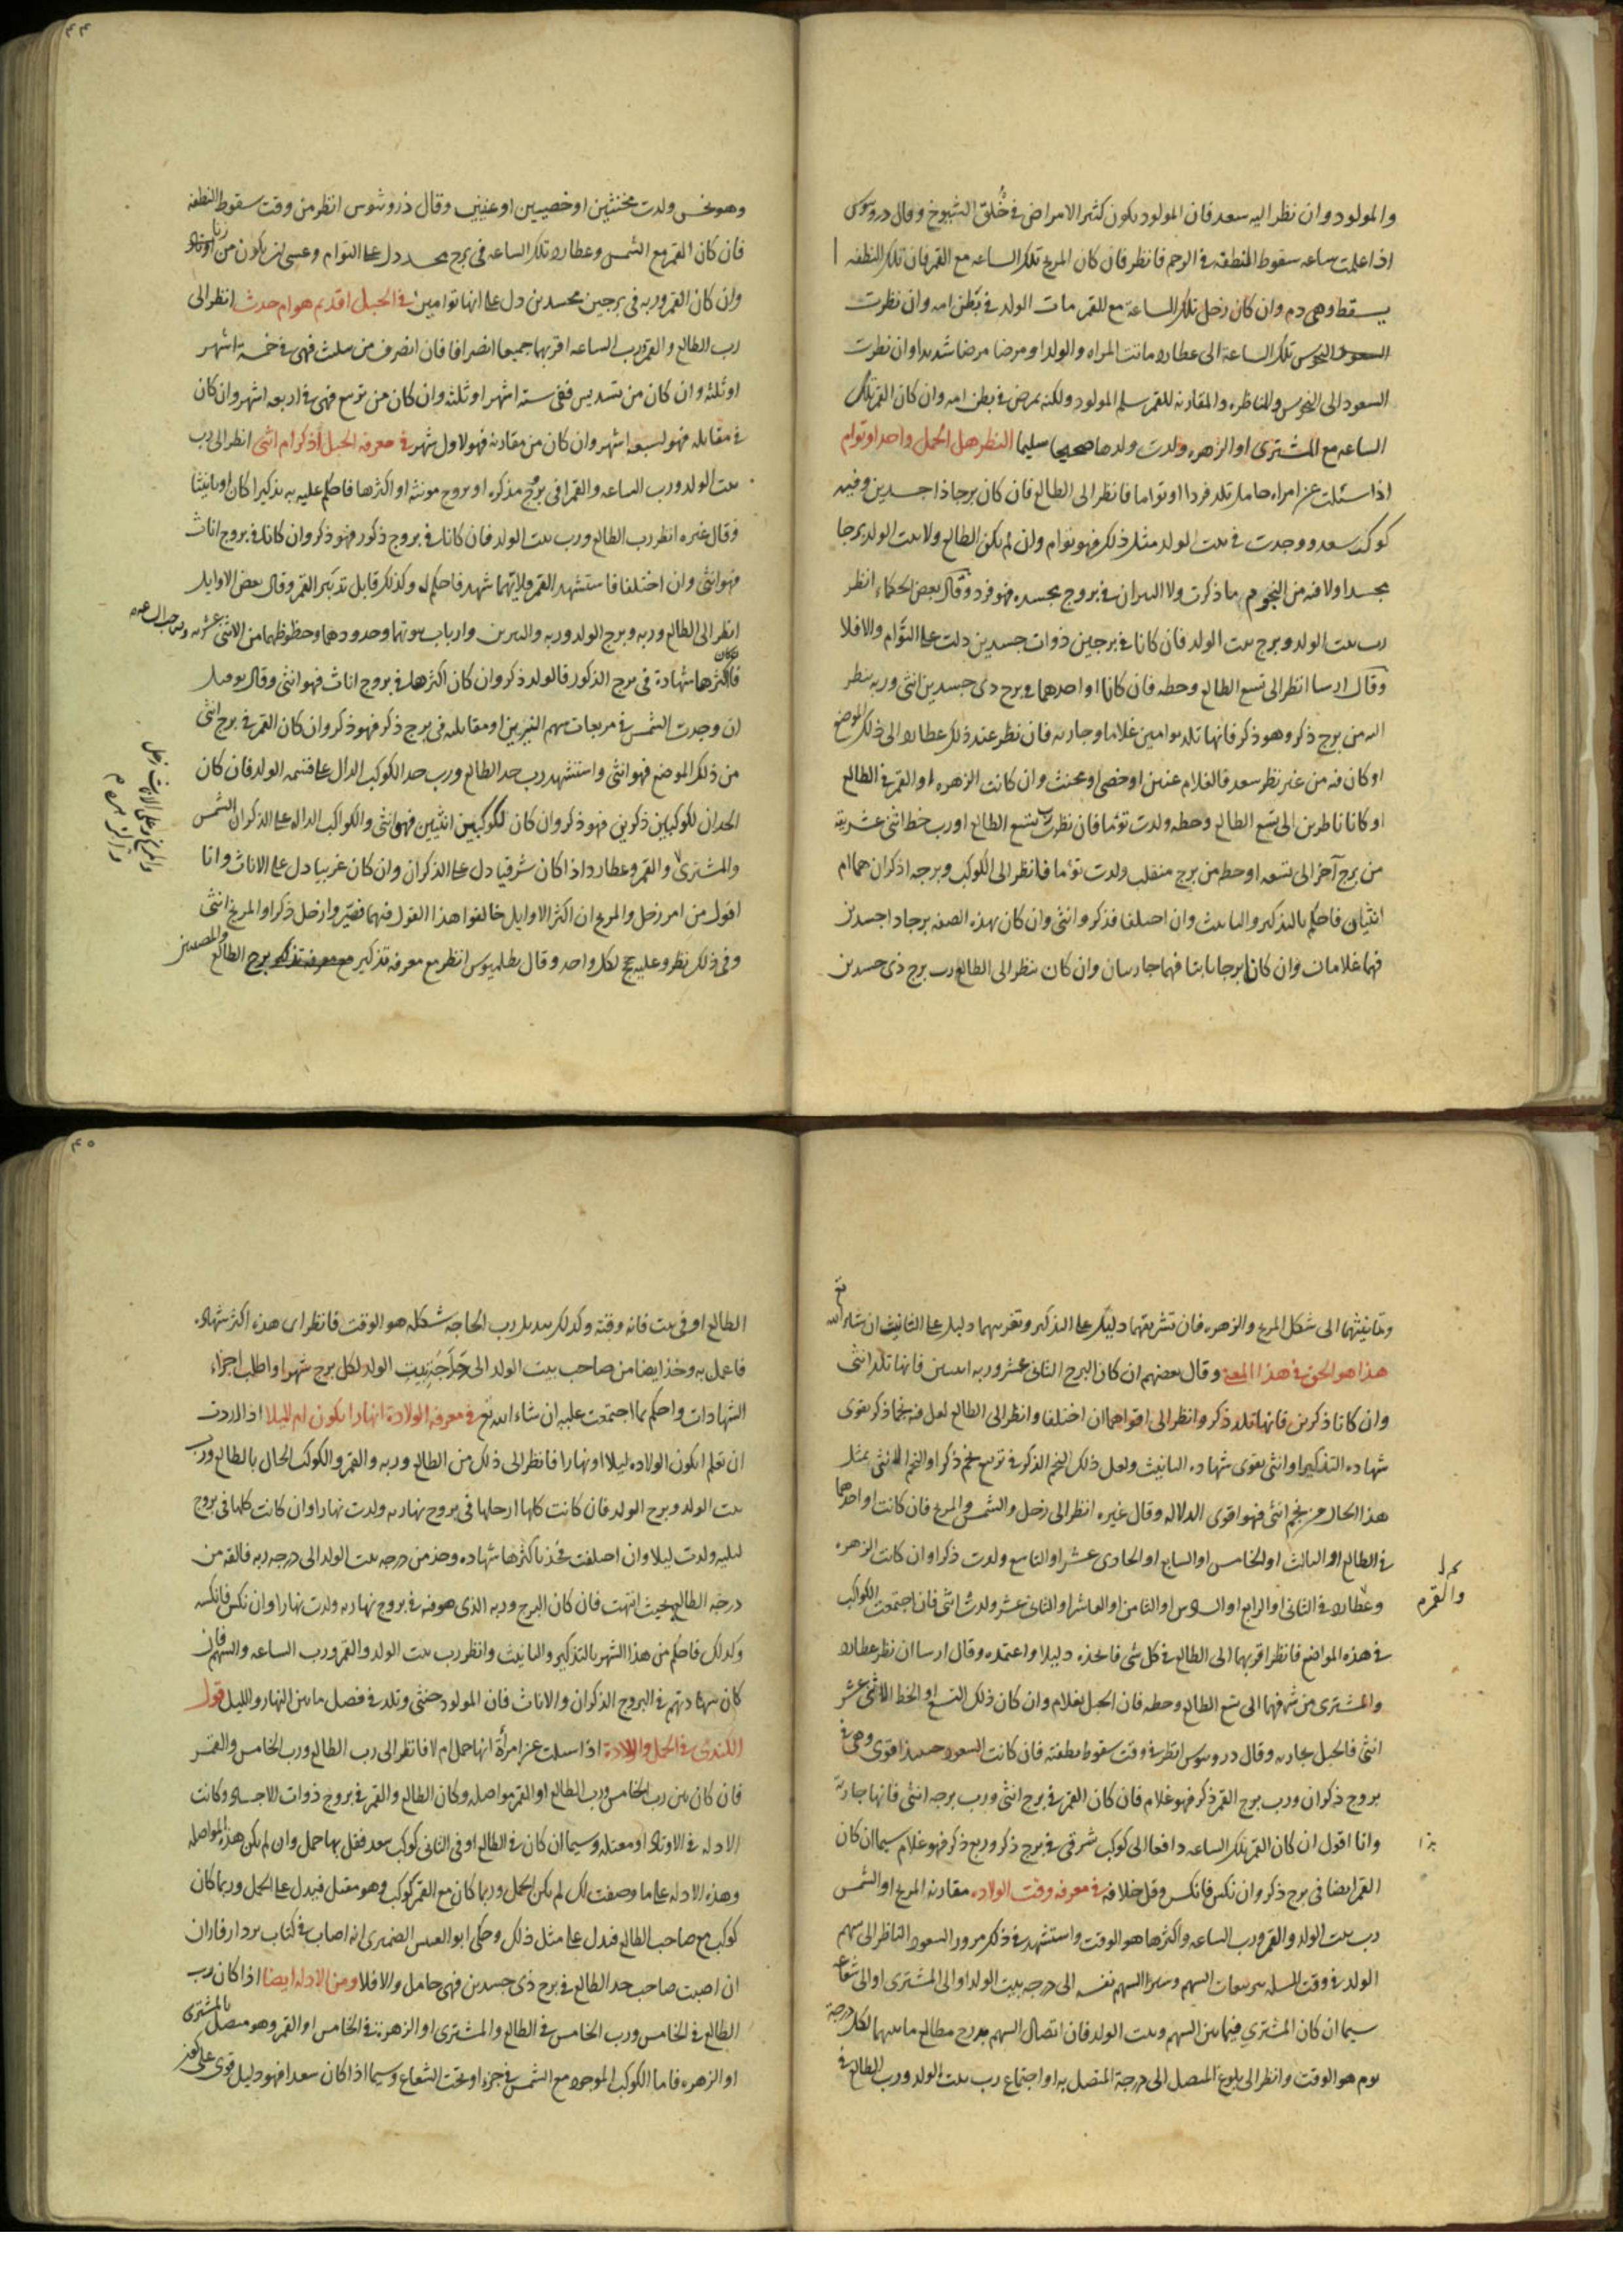 والمولود وان نظر اليه سعد فان المولود يكون كثير الامراض في خُلق الشيوخ وقال دروسوس
اذا علمت ساعه سقوط النطفه في الرحم فانظر فان كان المريخ تلك الساعه مع القمر فان تلك النطفه
يسقط وهى دم وان كان زحل تلك الساعة مع القمر مات الولد في بطن امه وان نظرت
النحوس تلك الساعة الى عطارد ماتت المراه والولد او مرضا مرضا شديدا وان نظرت
السعود الى النحوس والمناظره والمقارنه للقمر سلم المولود ولكنه يمرض في بطن امه وان كان القمر تلك
الساعه مع المشترى او الزهره ولدت ولدها صحيحا سليما النظر هل الحمل واحد او توام
اذا سئلت عن امراه حامل تلد فردا او تواما فانظر الى الطالع فان كان برجا ذا جسدين وفيه
كوكب سعد ووجدت في بيت الولد مثل ذلك فهو توام وان لم يكن الطالع ولا بيت الولد برجا
مجسدا ولا فيه من النجوم ما ذكرت ولا النيران في بروج مجسده فهو فرد وقال بعض الحكماء انظر
رب بيت الولد وبرج بيت الولد فان كانا في برجين ذوات جسدين دلت على التوام والا فلا
وقال ارسا انظر الى تسع الطالع وحطه فان كانا او احدهما في برج ذى جسدين انثى وربه ينظر
اليه من برج ذكر وهو ذكر فانها تلد توامين غلاما وجاريه فان نظر عند ذلك عطارد الى ذلك الموضع
او كان فيه من غير نظر سعد فالغلام عنين او خصى او مخنث وان كانت الزهره او القمر في الطالع
او كانا ناظرين الى تسع الطالع وحطه ولدت توئما فان نظر رب تسع الطالع او رب خط اثنى عشريته
من برج آخر الى تسعه او حطه من برج منقلب ولدت توئما فانظر الى الكوكب وبرجه اذكران هما ام
انثيان فاحكم بالتذكير والتانيث وان اختلفا فذكر وانثى وان كان بهذه الصفه برجا ذا جسدين
فهما غلامان وان كان برجا ثابتا فهما جاريتان وان كان ينظر الى الطالع رب برج ذى جسدين
٤٤
وهو نحس ولدت مخنثين او خصيين او عنينين وقال ذروثيوس انظر من وقت سقوط النطفه
فان كان القمر مع الشمس وعطارد تلك الساعه في برج مجسد دل على التوام وعسى ان يكون من
وان كان القمر وربه في برجين مجسدين دل على انها توامين في الحبل اقديم هو ام حدث انظر الى
رب الطالع والقمر ورب الساعه اقربهما جميعا انصرافا فان انصرف من تثليث فهى في خمسة اشهر
او ثلثه وان كان من تسديس ففى سته اشهر او ثلثه وان كان من تربيع فهى في اربعه اشهر وان كان
في مقابله فهو لسبعه اشهر وان كان من مقارنه فهو لاول شهر في معرفه الحبل اذكر ام انثى انظر الى رب
بيت الولد ورب الساعه والقمر افى بروج مذكره او بروج مونثه او اكثرها فاحكم عليه به تذكيرا كان او تانيثا
وقال غيره انظر رب الطالع ورب بيت الولد فان كانا في بروج ذكور فهو ذكر وان كانا في بروج اناث
فهو انثى وان اختلفا فاستشهد القمر فلايهما شهد فاحكم له وكذلك قابل تدبير القمر وقال بعض الاوايل
انظر الى الطالع وربه وبرج الولد وربه والنيرين وارباب بيوتهما وحدودهما وحظوظهما من الاثنى عشريه وصاحب الساعه
فاكثرها شهادة في برج الذكور فالولد ذكر وان كان اكثرها في بروج اناث فهو انثى وقال
ان وجدت الشمس في مربعات سهم النيرين او مقابلته في برج ذكر فهو ذكر وان كان القمر في برج انثى
من ذلك الموضع فهو انثى واستشهد رب حد الطالع ورب حد الكوكب الدال على قسمه الولد فان كان
الحدان لكوكبين ذكرين فهو ذكر وان كان لكوكبين انثيين فهو انثى والكواكب الداله على الذكران الشمس
والمشترى والقمر وعطارد اذا كان شرقيا دل على الذكران وان كان غربيا دل على الاناث وانا
اقول من امر زحل والمريخ ان اكثر الاوايل خالفوا هذا القول فيهما فصير وا زحل ذكرا والمريخ انثى
وفى ذلك نظر وعليه حجج لكل واحد وقال بطلميوس انظر مع معرفه تذكير برج الطالع
وتانيثهما الى شكل المريخ والزهره فان تشريقهما دليل على التذكير وتغريبهما دليل على التانيث ان شاء الله تع
هذا هو الحق في هذا المعنى وقال بعضهم ان كان البرج الثانى عشر وربه انثيين فانها تلد انثى
وان كانا ذكرين فانها تلد ذكر وانظر الى اقواهما ان اختلفا وانظر الى الطالع لعل فيه نجما ذكر يقوى
شهاده التذكير او انثى يقوى شهاده التانيث ولعل ذلك النجم الذكر في تربيع نجم ذكر او النجم الانثى بمثل
هذا الحال من نجم انثى فهو اقوى الدلاله وقال غيره انظر الى زحل والشمس والمريخ فان كانت او احدهما
في الطالع او الثالث او الخامس او السابع او الحادى عشر او التاسع ولدت ذكرا وان كانت الزهره
وعطارد في الثانى او الرابع او السادس او الثامن او العاشر او الثانى عشر ولدت انثى فان اجتمعت الكواكب
والقمر
في هذه المواضع فانظر اقربهما الى الطالع في كل شى فاتخذه دليلا واعتمده وقال ارسا ان نظر عطارد
والمشترى من شرفهما الى تسع الطالع وحطه فان الحبل بغلام وان كان ذلك التسع او الخط الاثنى عشر
انثى فالحبل بجاريه وقال دروسوس انظر في وقت سقوط نطفته فان كانت السعود حينئذ اقوى وهى في
بروج ذكران ورب برج القمر ذكر فهو غلام فان كان القمر في برج انثى ورب برجه انثى فانها جارية
وانا اقول ان كان القمر تلك الساعه دافعا الى كوكب شرقى في برج ذكر وربع ذكر فهو غلام سيما ان كان
القمر ايضا في برج ذكر وان نكس فانكس وقل خلافه في معرفه وقت الولاده مقارنه المريخ او الشمس
رب بيت الولد والقمر ورب الساعه واكثرها هو الوقت واستشهد في ذلك مرور السعود الناظر الى سهم
الولد في وقت المسله بتربيعات السهم وسير السهم نفسه الى درجه بيت الولد او الى المشترى او الى شعاعه
سيما ان كان المشتري فيما بين السهم وبيت الولد فان اتصال السهم بدرج مطالع ما بينهما لكل درجة
يوم هو الوقت وانظر الى بلوغ المتصل الى درجة المتصل به او اجتماع رب بيت الولد ورب الطالع في
٤٥
الطالع او في بيت فانه وقته وكذلك تبديل رب الحاجه شكله هو الوقت فانظر اى هذه اكثر شهاده
فاعمل به وخذ ايضا من صاحب بيت الولد الى بيت الولد لكل برج شهرا واطلب اجزاء
الشهادات واحكم بما اجتمعت عليه ان شاء الله تع في معرفه الولادة انهارا يكون ام ليلا اذا اردت
ان تعلم ايكون الولاده ليلا او نهارا فانظر الى ذلك من الطالع وربه والقمر والكوكب الحال بالطالع ورب
بيت الولد وبرج الولد فان كانت كلها او جلها في بروج نهاريه ولدت نهارا وان كانت كلها في بروج
ليليه ولدت ليلا وان اختلفت فخذ باكثرها شهاده وخذ من درجه بيت الولد الى درجه ربه فالقه من
درجه الطالع فحيث انتهت فان كان البرج وربه الذى هو فيه في بروج نهاريه ولدت نهارا وان نكس فانكسه
وكذلك فاحكم من هذا الشهر بالتذكير والتانيث وانظر رب بيت الولد والقمر ورب الساعه والسهم فان
كان شهادتهم في البروج الذكران والاناث فان المولود خنثى وتلد في فصل ما بين النهار والليل قول
الكندى في الحمل والولادة اذا سئلت عن امرأة انها حمل ام لا فانظر الى رب الطالع ورب الخامس والقمر
فان كان بين رب الخامس ورب الطالع او القمر مواصله وكان الطالع والقمر في بروج ذوات الاجساد وكانت
الادله في الاوتاد او مقبله وسيما ان كان في الطالع او في الثانى كوكب سعد فقل بها حمل وان لم يكن هذه المواصله
وهذه الادله على ما وصفت لك لم يكن الحمل وربما كان مع القمر كوكب وهو مقبل فيدل على الحمل وربما كان
كوكب مع صاحب الطالع فيدل على مثل ذلك وحكى ابو العبس الضميرى انه اصاب في كتاب
ان اصبت صاحب حد الطالع في برج ذى جسدين فهى حامل والا فلا ومن الادله ايضا اذا كان رب
الطالع في الخامس ورب الخامس في الطالع والمشترى او الزهرة في الخامس او القمر وهو متصل بالمشترى
او الزهره فاما الكوكب الموجود مع الشمس في جزء او تحت الشعاع وسيما اذا كان سعدا فهو دليل قوى على